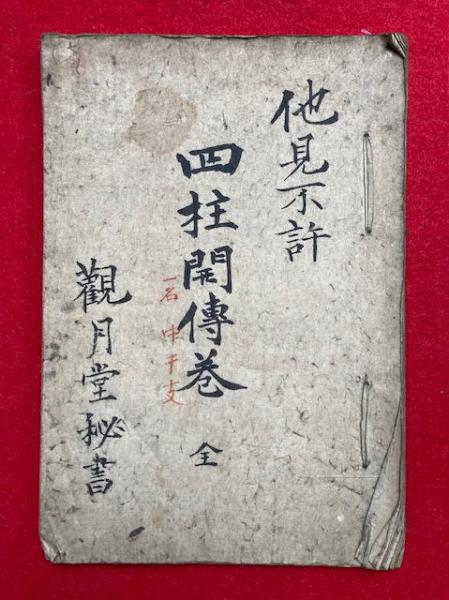 他見不許
四柱開傳卷 全
一名 中干支
觀月堂秘書